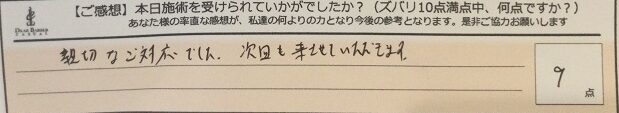 【ご感想】本日施術を受けられていかがでしたか？（ズバリ10点満点中、何点ですか？）
あなた様の率直な感想が、私達の何よりの力となり今後の参考となります。是非ご協力お願いします
親切なご対応でした。次回も来させていただきます。
9
点